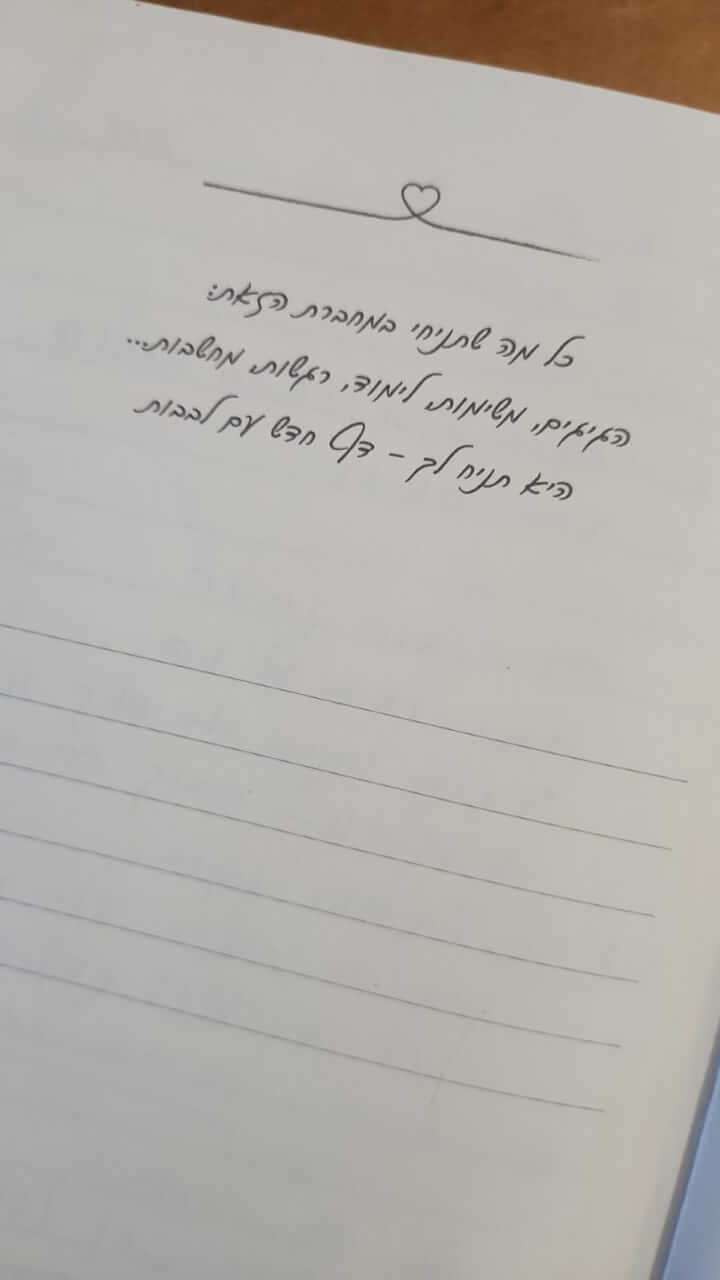 כל מה שתניחי במחברת הזאת:
הגיגים, משימות לימוד, רגשות, מחשבות...
היא תניח לך - דף חדש עם לבבות